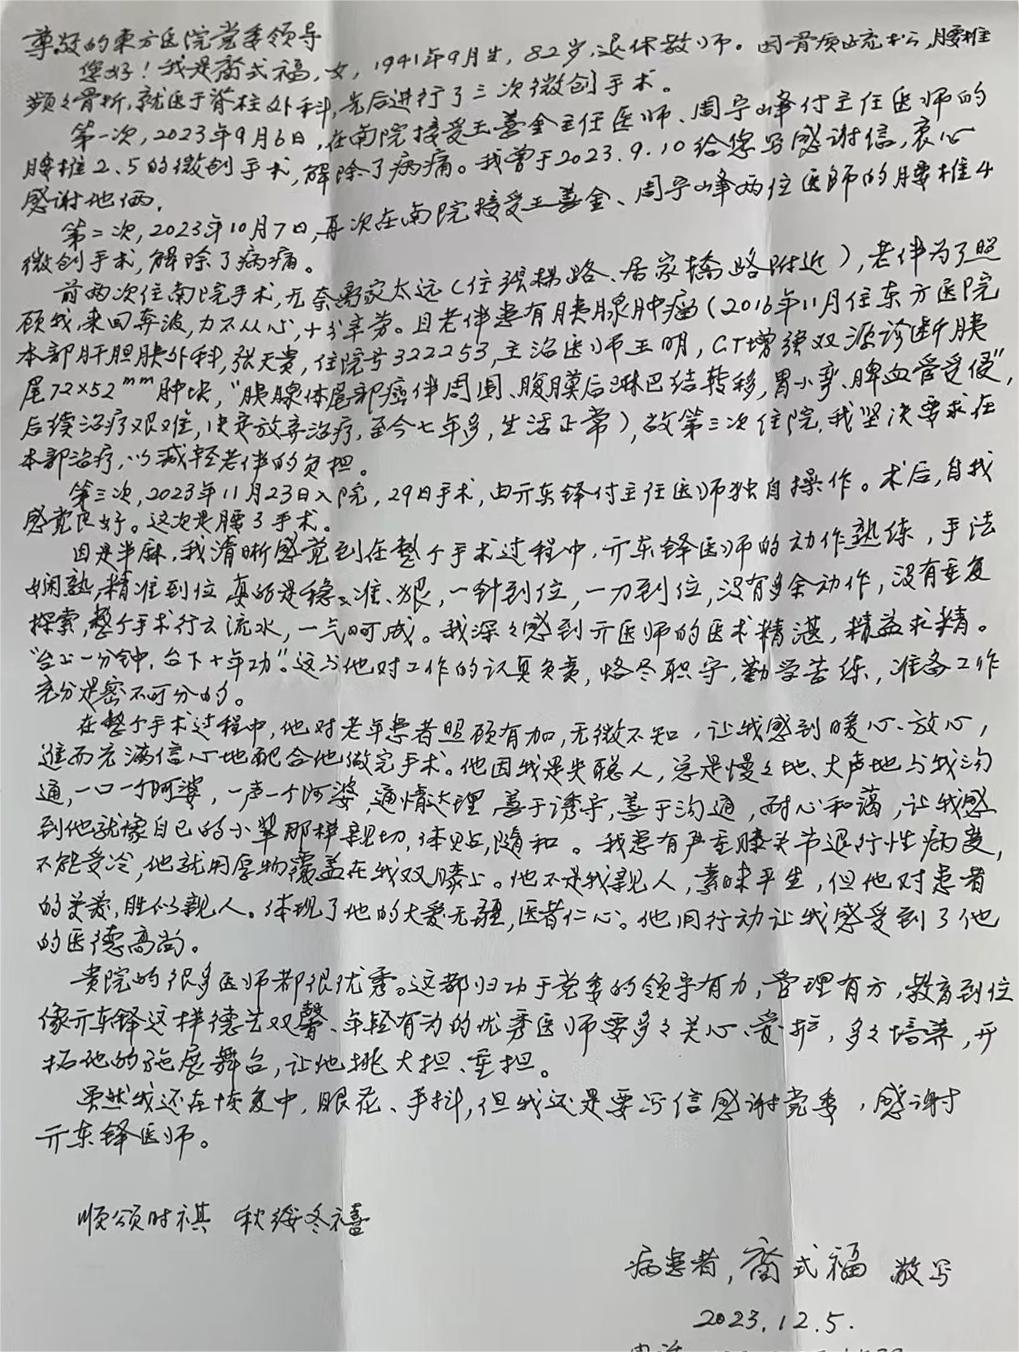 尊敬的東方医院党委领导
您好！我是裔式福，女，1941年9月生，82岁，退休教师。因骨质疏松、腰椎
频频骨折，就医于脊柱外科，先后进行了三次微创手术。
第一次，2023年9月6日，在南院接受王善金主任医师、周宇峰付主任医师的
腰椎2、5的微创手术，解除了病痛。我曾于2023.9.10给您写感谢信，衷心
感谢他俩。
第二次，2023年10月7日，再次在南院接受王善金、周宇峰两位医师的腰椎4
微创手术，解除了病痛。
前两次住南院手术，无奈离家太远（住張楊路、居家橋路附近），老伴为了照
顾我，来回奔波，力不从心，十分辛劳。且老伴患有胰腺肿瘤（2016年11月住东方医院
本部肝胆胰外科，张天贵，住院号322253，主治医师王明，CT增强双源诊断胰
尾72×52mm肿块，“胰腺体尾部癌伴周围、腹膜后淋巴结转移，胃小弯、脾血管受侵”，
后续治疗艰难，决定放弃治疗，至今七年多，生活正常），故第三次住院，我坚决要求在
本部治疗，以减轻老伴的负担。
第三次，2023年11月23日入院，29日手术，由亓东铎付主任医师独自操作。术后，自我
感觉良好。这次是腰3手术。
因是半麻，我清晰感觉到在整个手术过程中，亓东铎医师的动作熟练，手法
娴熟，精准到位，真的是稳、准、狠，一针到位，一刀到位，没有多余动作，没有重复
探索，整个手术行云流水，一气呵成。我深深感到亓医师的医术精湛，精益求精。
“台上一分钟，台下十年功”。这与他对工作的认真负责，恪尽职守，勤学苦练，准备工作
充分是密不可分的。
在整个手术过程中，他对老年患者照顾有加，无微不知，让我感到暖心、放心，
進而充满信心地配合他做完手术。他因我是失聪人，总是慢慢地、大声地与我沟
通，一口一个阿婆，一声一个阿婆，通情达理，善于诱导，善于沟通，耐心和蔼，让我感
到他就像自己的小辈那样親切，体贴，随和。我患有严重膝关节退行性病变，
不能受冷，他就用厚物覆盖在我双膝上。他不是我親人，素昧平生，但他对患者
的关爱，胜似親人。体现了他的大爱无疆，医者仁心。他用行动让我感受到了他
的医德高尚。
贵院的很多医师都很优秀。这都归功于党委的领导有力，管理有方，教育到位
像亓东铎这样德艺双馨、年轻有为的优秀医师要多多关心、爱护，多多培养，开
拓他的施展舞台，让他挑大担、重担。
虽然我还在恢复中，眼花、手抖，但我还是要写信感谢党委，感谢
亓东铎医师。
顺颂时祺 秋绥冬禧
病患者，裔式福 敬写
2023.12.5.